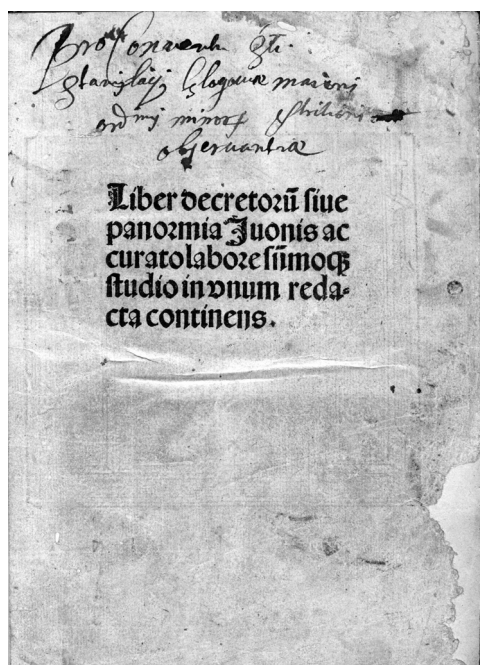 Pro Conventu Sti.
Stanislaij Glogoviæ maioris
ordinis minorū
observantiæ
Liber decretoꝛū ſiue
panormia Juonis ac
curato laboꝛe ſūmoqꝫ
ſtudio in vnum reda⸗
cta continens.